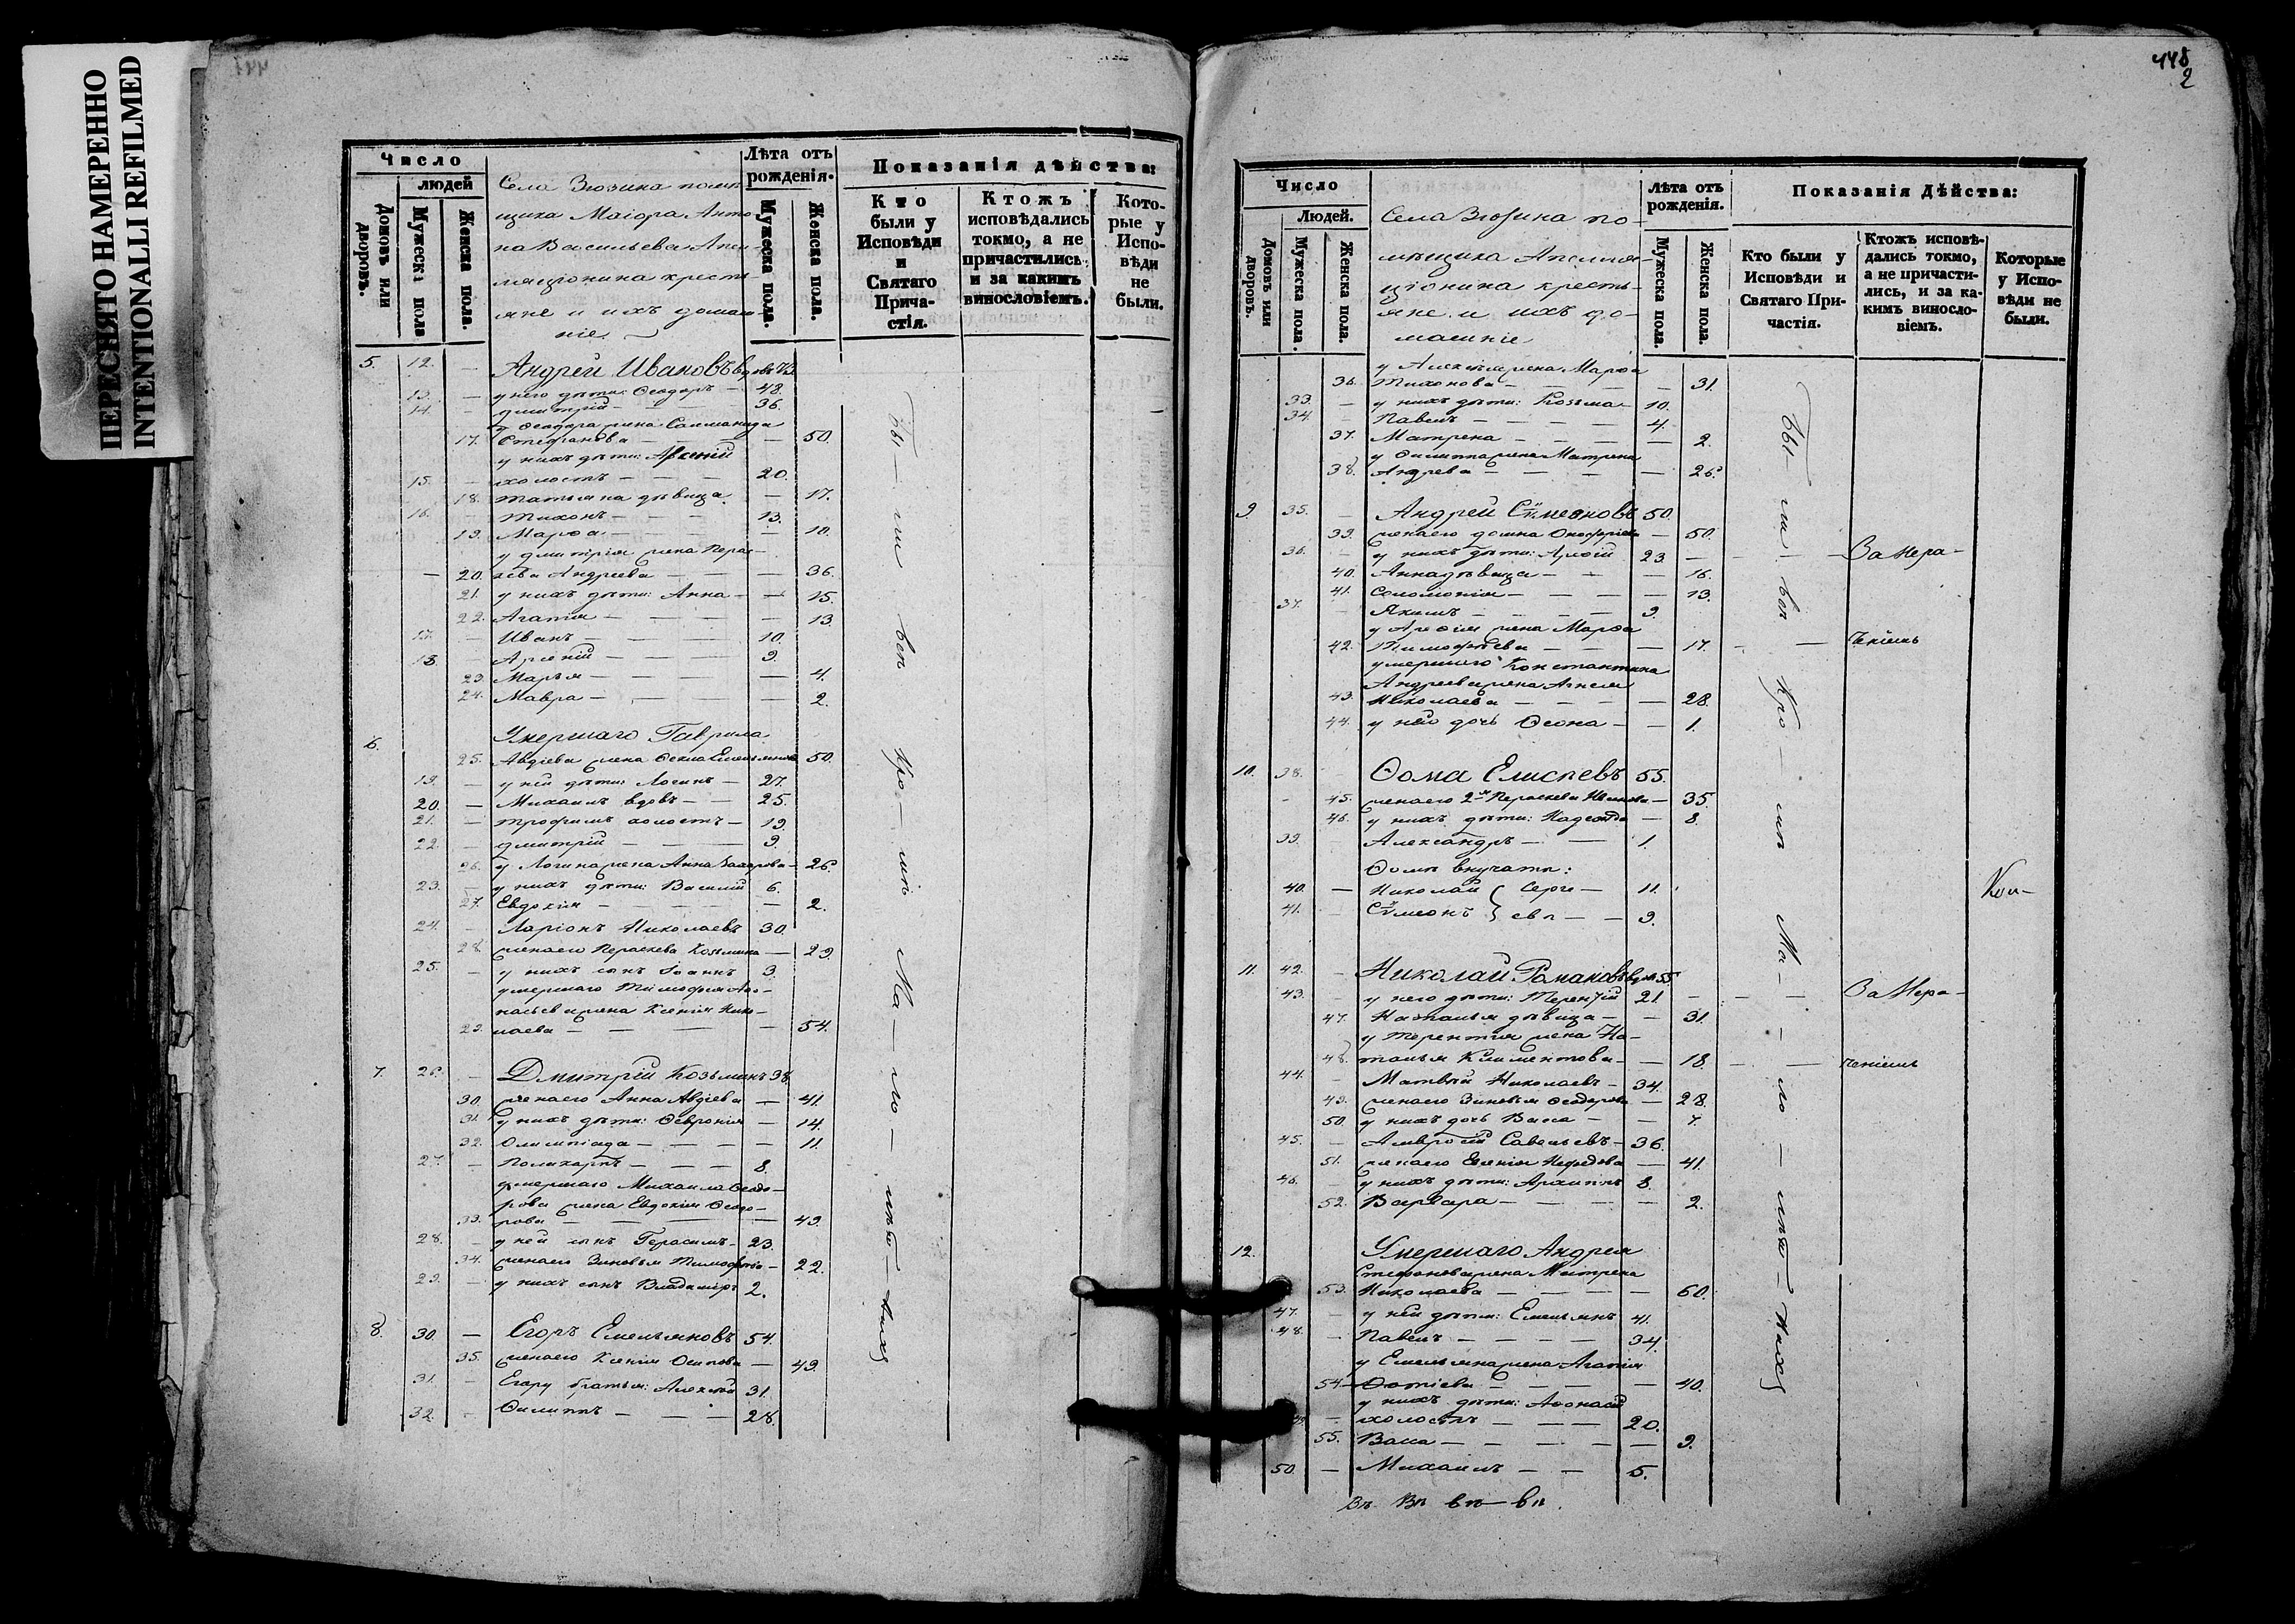 ПЕРЕСНЯТО НАМЕРЕННО
INTENTIONALLI REFILMED
Число
людей
Домовъ или дворовъ.
Мужеска пола
Женска пола.
Села Зюзина помѣ-
щика Маіора Анто-
на Васильева
крестъ-
яне и ихъ домаш-
ніе.
Лѣта отъ
рожденія.
Мужеска пола.
Женска пола.
Показанія дѣйства:
Кто
были у
Исповѣди
и
Святаго
Прича-
стія.
Ктожъ
исповѣдались
токмо, а не
причастились,
и за какимъ
винословіемъ.
Кото-
рые у
Испо-
вѣди
не
были.
5. 12. — Андрей Ивановъ вдовъ 73.
13. — у него дѣти: Ѳеодоръ — 48.
14. — Дмитрій — — 36.
у Ѳеодора жена Саломанида
17. Стефанова — — — 50.
у нихъ дѣти: Арсеній
15. — холостъ — — — 20.
18. Татьяна дѣвица — 17.
16. — Тихонъ — — — 13.
19. Марѳа — — — — 10.
у Дмитрія жена Парас-
— 20. кева Андреева — — — 36.
21. у нихъ дѣти: Анна — — 15.
22. Агапія — — — — 13.
17. — Иванъ — — — 10.
18. Арсеній — — — 9.
23. Марья — — — — 4.
24. Мавра — — — 2.
6. Умершаго Гаврила
25. Авдіева жена Ѳекла Емельянова 50.
19. — у ней дѣти: Логинъ — 27.
20. — Михаилъ вдовъ — — 25.
21. — Трофимъ холостъ — 19.
22. — Дмитрій — — — 9.
26. у Логина жена Анна Захарова — 26.
23. — у нихъ дѣти: Василій 6.
27. Евдокія — — — — — 2.
24. — Ларіонъ Николаевъ 30.
28. жена его Параскева Козьмина — 29.
25. — у нихъ сынъ Іоаннъ 3.
умершаго Тимофея
жена Ксенія Нико-
29. лаева — — — — 54.
7. 26. — Дмитрій Козьминъ 38.
30. жена его Анна Авдіева — 41.
31. у нихъ дѣти: Ѳевронія — 14.
32. Олимпіада — — — — 11.
27. — Поликарпъ — — — 8.
умершаго Михаила Ѳеодо-
рова жена Евдокія Ѳеодо-
33. рова — — — — 49.
28. — у ней сынъ Герасимъ — 23.
34. жена его Зиновья Тимофѣева — 22.
29. — у нихъ сынъ Владиміръ 2.
8. 30. — Егоръ Емельяновъ 54.
35. жена его Ксенія Осипова — 49.
31. — Егору братья: Алексѣй 31.
32. — Филиппъ — — — 28.
448
2
Число
Людей.
Домовъ или дворовъ.
Мужеска пола.
Женска пола.
Села Зюзина по-
мѣщика
крестъ-
яне и ихъ до-
машніе
Лѣта отъ
рожденія.
Мужеска пола.
Женска пола.
Показанія Дѣйства:
Кто были у
Исповѣди и
Святаго При-
частія.
Ктожъ исповѣ-
дались токмо,
а не причасти-
лись, и за ка-
кимъ виносло-
віемъ.
Которые
у Испо-
вѣди не
были.
у Алексѣя жена Марѳа
36. Тихонова — — — — 31.
33. — у нихъ дѣти: Козьма — 10.
34. — Павелъ — — — — 4.
37. Матрена — — — — 2.
у Филиппа жена Матрена
38. Андреева — — — — 26.
9. 35. — Андрей Сѵмеоновъ 50.
39. жена его Домна Онофріева — 50.
36. — у нихъ дѣти: Арефій 23. — — — За Нера-
40. Анна дѣвица — — — 16.
41. Соломонія — — — — 13.
37. Якимъ — — — — 9.
у Арефія жена Марѳа
42. Тимофѣева — — — — 17. — — ченіемъ
умершаго Константина
Андреева жена Агнея
43. Николаева — — — — 28.
44. у ней дочь Ѳеона — — 1.
10. 38. Ѳома Елисѣевъ 55.
45. жена его 2я Параскева Иванова — 35.
46. у нихъ дѣти: Надежда — 8.
39. — Александръ — — — 1.
Ѳомы внучата:
40. — Николай } Серге — 11.
41. — Сѵмеонъ } евы — — 9.
Кон-
11. 42. — Николай Романовъ вдовъ 55.
43. — у него дѣти: Терентій 21. — — — За Нера-
47. Наталья дѣвица — — 31.
у Терентія жена На-
48. талья Климентова — — 18. — — ченіемъ
44. — Матвѣй Николаевъ — 34.
49. жена его Зиновья Ѳеодорова — 28.
50. у нихъ дочь Васса — — 7.
45. — Амвросій Савельевъ — 36.
51. жена его Евгенія Нефедова — 41.
46. — у нихъ дѣти: Архипъ 8.
52. Варвара — — — — 2.
12. Умершаго Андрея
Стефанова жена Матрена
53. Николаева — — — — 60.
47. — у ней дѣти: Емельянъ 41.
48. — Павелъ — — — — 34.
у Емельяна жена Агапія
54. Фотіева — — — — 40.
у нихъ дѣти: Аѳонасій
49. — холостъ — — — 20.
55. Васса — — — — — 9.
50. — Михаилъ — — 5.
Бы — ли всѣ Кро — мѣ Ма — ло — лѣт — ныхъ
Бы — ли всѣ Кро — мѣ Ма — ло — лѣт — ныхъ